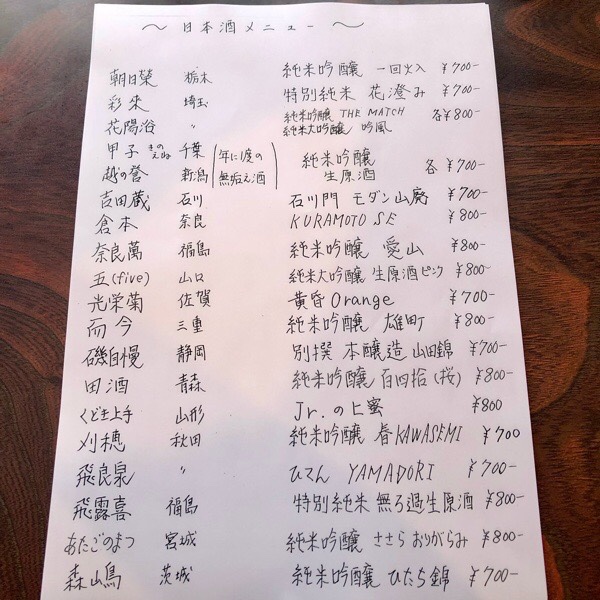 〜 日本酒メニュー 〜
朝日榮 栃木 純米吟醸 一回火入 ¥700-
彩來 埼玉 特別純米 花澄み ¥700-
花陽浴 〃 純米吟醸 THE MATCH 各¥800-
純米大吟醸 吟風
甲子 きのえね 千葉 (年に1度の 純米吟醸
越の誉 新潟 無垢え酒) 生原酒 各¥700-
吉田蔵 石川 石川門 モダン山廃 ¥700-
倉本 奈良 KURAMOTO SE ¥800-
奈良萬 福島 純米吟醸 愛山 ¥800-
五(five) 山口 純米大吟醸 生原酒ピンク ¥800-
光栄菊 佐賀 黄昏Orange ¥700-
而今 三重 純米吟醸 雄町 ¥800-
磯自慢 静岡 別撰 本醸造 山田錦 ¥700-
田酒 青森 純米吟醸 百四拾(桜) ¥800-
くどき上手 山形 Jr.のヒ蜜 ¥800
刈穂 秋田 純米吟醸 春KAWASEMI ¥700
飛良泉 〃 ひてん YAMADORI ¥700-
飛露喜 福島 特別純米 無ろ過生原酒 ¥800-
あたごのまつ 宮城 純米吟醸 ささら おりがらみ ¥800-
森嶋 茨城 純米吟醸 ひたち錦 ¥700-